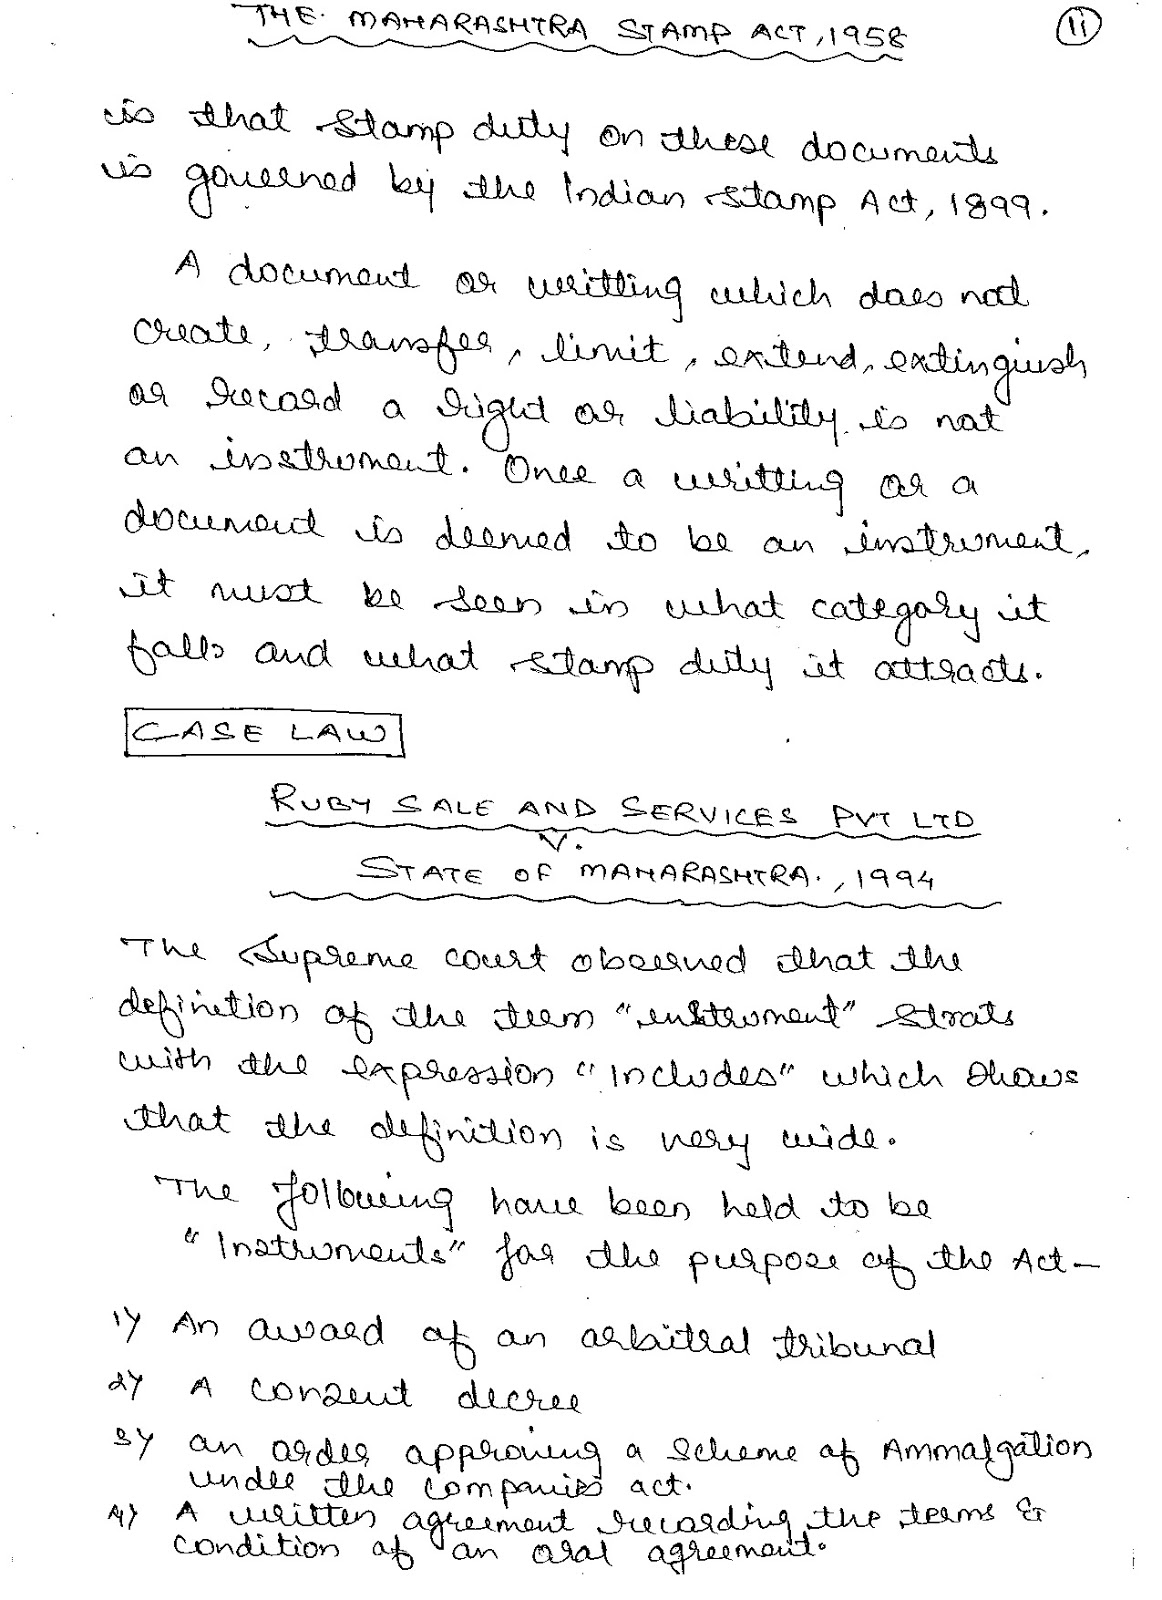 THE MAHARASHTRA STAMP ACT, 1958
11
is that stamp duty on these documents
is governed by the Indian Stamp Act, 1899.
A document or writting which does not
create, transfer, limit, extend, extinguish
or record a right or liability is not
an instrument. Once a writting or a
document is deemed to be an instrument,
it must be seen in what category it
falls and what stamp duty it attracts.
CASE LAW
RUBY SALE AND SERVICES PVT LTD
V.
STATE OF MAHARASHTRA., 1994
The Supreme court observed that the
definition of the term "instrument" Strats
with the expression "includes" which shows
that the definition is very wide.
The following have been held to be
"Instruments" for the purpose of the Act—
1) An award of an arbitral tribunal
2) A consent decree
3) an order approving a scheme of Ammalgation
under the companies act.
4) A written agreement recording the terms &
condition of an oral agreement.